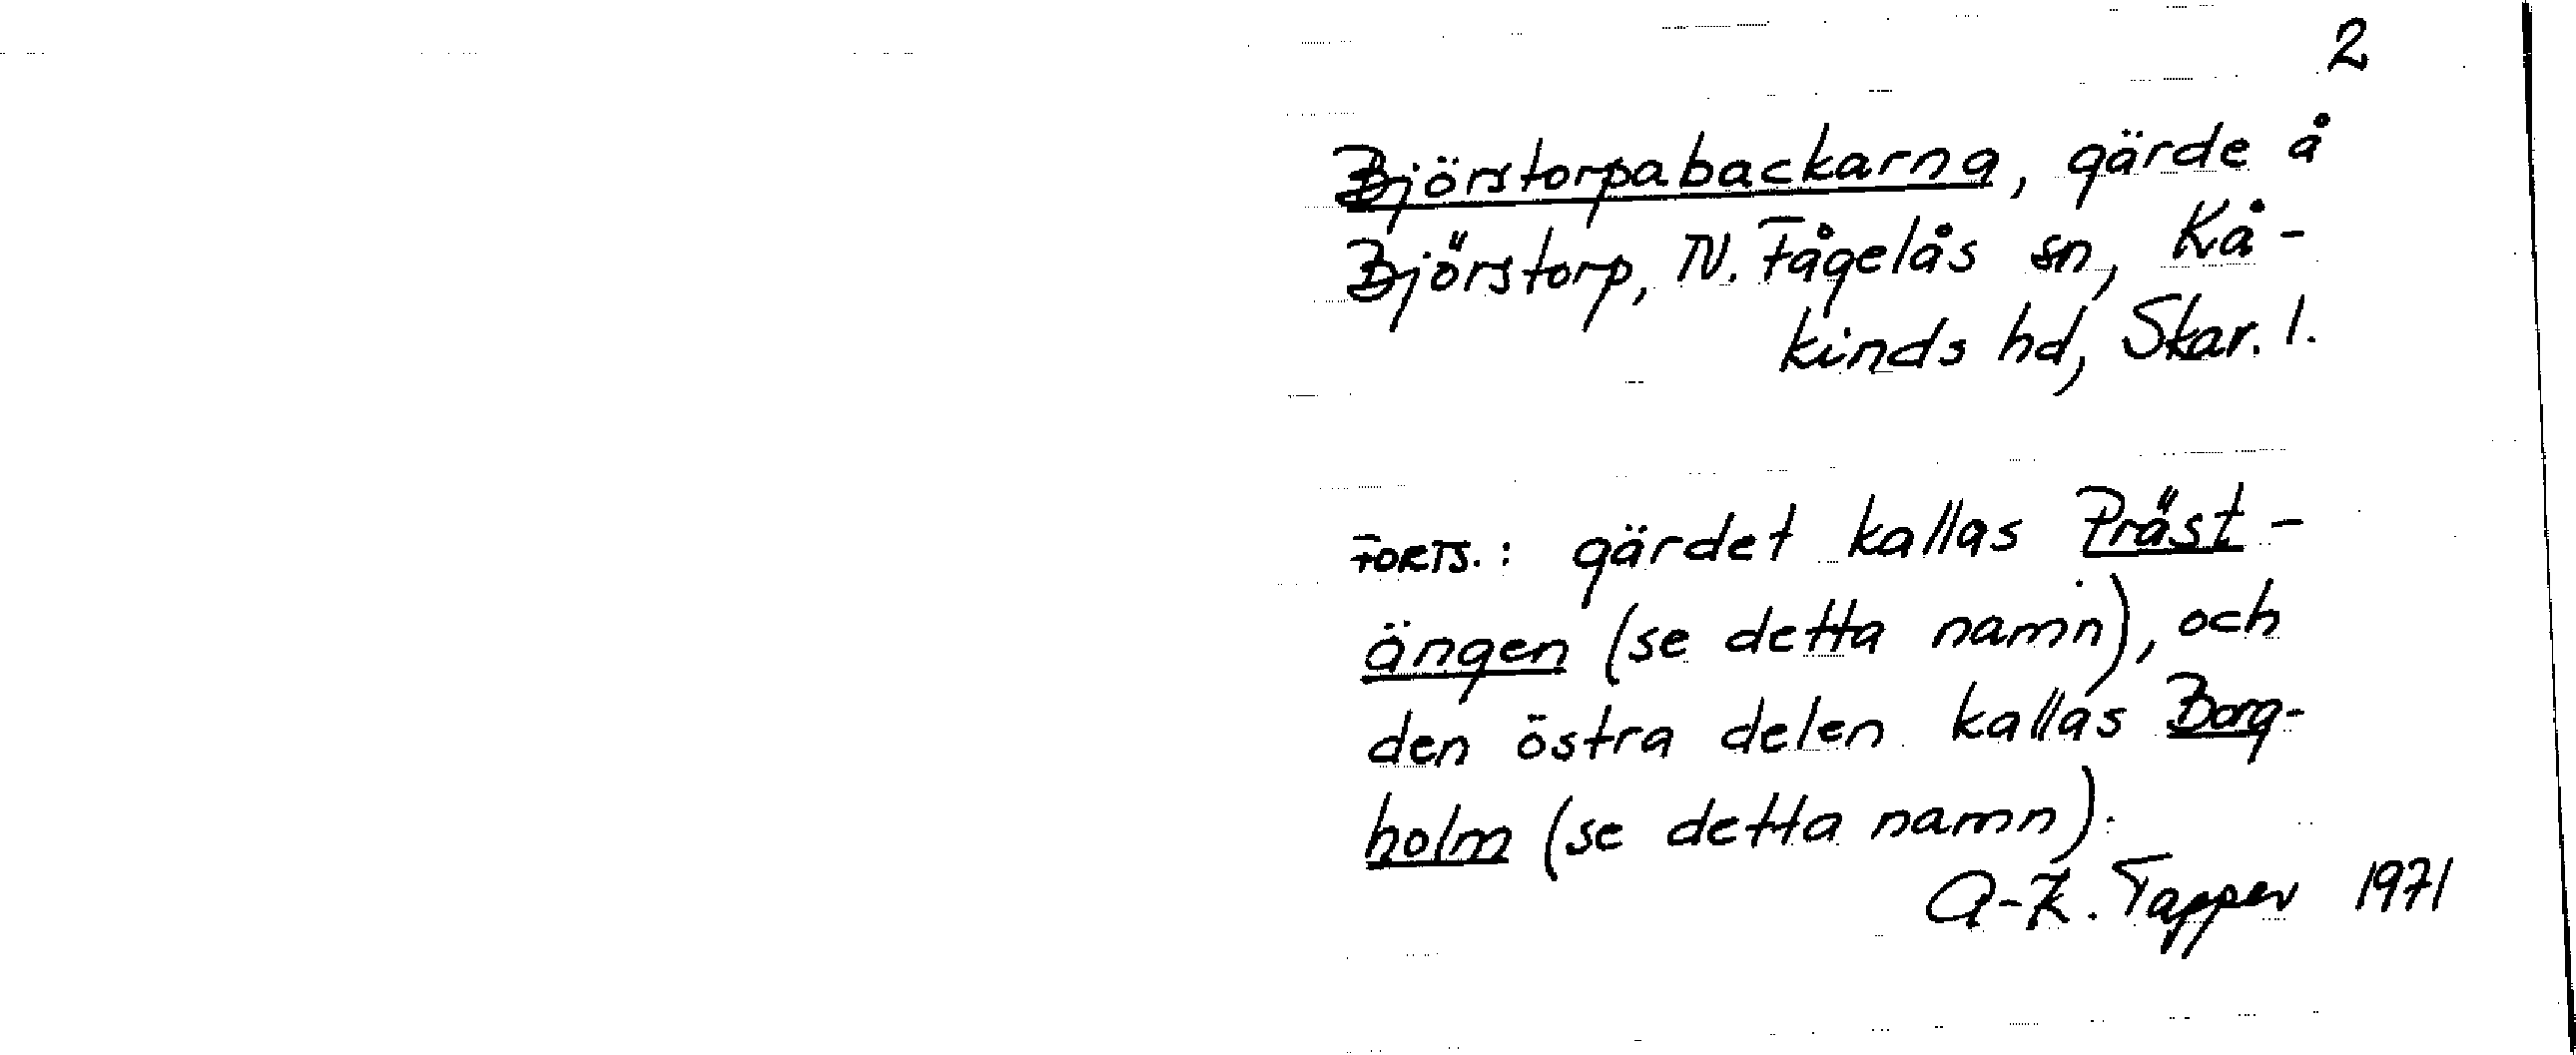 2
Björstorpabackarna, gärde å
Björstorp, N. Fågelås sn, Kå-
kinds hd, Skar. l.
FORTS.: gärdet kallas Präst-
ängen (se detta namn), och
den östra delen kallas Borg-
holm (se detta namn).
A-K. Tapper 1971